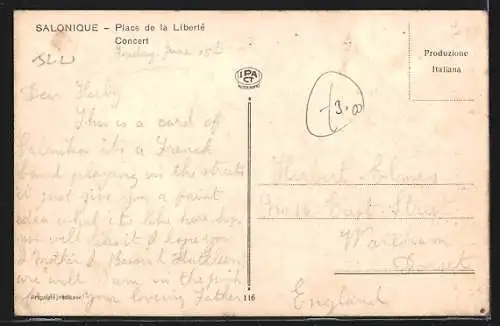 SALONIQUE – Place de la Liberté
Concert
Friday, June 15th
Produzione
Italiana
IPA
CT
3.00
Dear Herby
This is a card of
Salonika its a French
band playing in the streets
just give you a faint
idea what its like here hope
you will like it I hope you
& Mother &
are well I am in the
your loving Father
116
Herbert
No 16 East Street
Wareham
Dorset
England